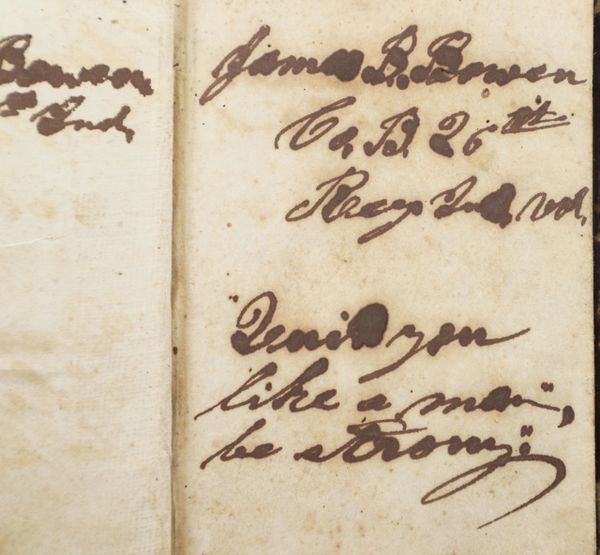 Bowen
Ind,
James B. Bowen
Co, B. 26th
Regy Ind, vol,
"Quit you
like a man",
be strong."